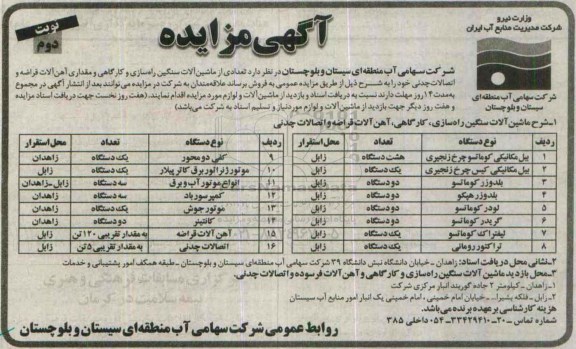 وزارت نیرو
شرکت مدیریت منابع آب ایران
شرکت سهامی آب منطقه‌ای
سیستان و بلوچستان
آگهی مزایده
نوبت دوم
شرکت سهامی آب منطقه‌ای سیستان و بلوچستان در نظر دارد تعدادی از ماشین‌آلات سنگین راه‌سازی و کارگاهی و مقداری آهن‌آلات قراضه و
اتصالات چدنی خود را به شرح ذیل از طریق مزایده عمومی به فروش برساند علاقه‌مندان به شرکت در مزایده می‌توانند بعد از انتشار آگهی در مجموع
به مدت ۱۴ روز مهلت دارند نسبت به دریافت اسناد و بازدید از ماشین‌آلات و لوازم مورد مزایده اقدام نمایند. (هفت روز نخست جهت دریافت اسناد مزایده
و هفت روز دیگر جهت بازدید از ماشین‌آلات و لوازم مورد نیاز و تسلیم اسناد به شرکت می‌باشد).
۱-شرح ماشین‌آلات سنگین راه‌سازی، کارگاهی، آهن‌آلات قراضه و اتصالات چدنی
ردیف نوع دستگاه تعداد محل استقرار ردیف نوع دستگاه تعداد محل استقرار
۱ بیل مکانیکی کوماتسو چرخ زنجیری هشت دستگاه زابل ۹ کفی دو محور یک دستگاه زاهدان
۲ بیل مکانیکی کیس چرخ زنجیری یک دستگاه زابل ۱۰ موتور ژنراتور برق کاترپیلار یک دستگاه زابل
۳ بلدوزر کوماتسو دو دستگاه زابل ۱۱ انواع موتور آب و برق سه دستگاه زابل-زاهدان
۴ بلدوزر هپکو دو دستگاه زابل ۱۲ کمپرسور باد سه دستگاه زاهدان
۵ لودر کوماتسو دو دستگاه زابل ۱۳ موتور جوش یک دستگاه زاهدان
۶ گریدر کوماتسو دو دستگاه زابل ۱۴ کانتینر دو دستگاه زاهدان
۷ لیفتراک کوماتسو یک دستگاه زابل ۱۵ آهن‌آلات قراضه به مقدار تقریبی ۱۲۰ تن زابل
۸ تراکتور رومانی یک دستگاه زابل ۱۶ اتصالات چدنی به مقدار تقریبی ۵ تن زابل
۲-نشانی محل دریافت اسناد: زاهدان - خیابان دانشگاه نبش دانشگاه ۳۹ شرکت سهامی آب منطقه‌ای سیستان و بلوچستان - طبقه همکف امور پشتیبانی و خدمات
۳-محل بازدید ماشین‌آلات سنگین راه‌سازی و کارگاهی و آهن‌آلات فرسوده و اتصالات چدنی.
۱-زاهدان - کیلومتر ۲ جاده گوربند انبار مرکزی شرکت
۲-زابل - فلکه یشیرا... - خیابان امام خمینی، امام خمینی یک انبار امور منابع آب سیستان
هزینه کارشناسی بر عهده برنده می‌باشد.
شماره تماس: ۲۰-۳۳۴۲۹۴۱۰-۰۵۴ داخلی ۳۸۵
روابط عمومی شرکت سهامی آب منطقه‌ای سیستان و بلوچستان